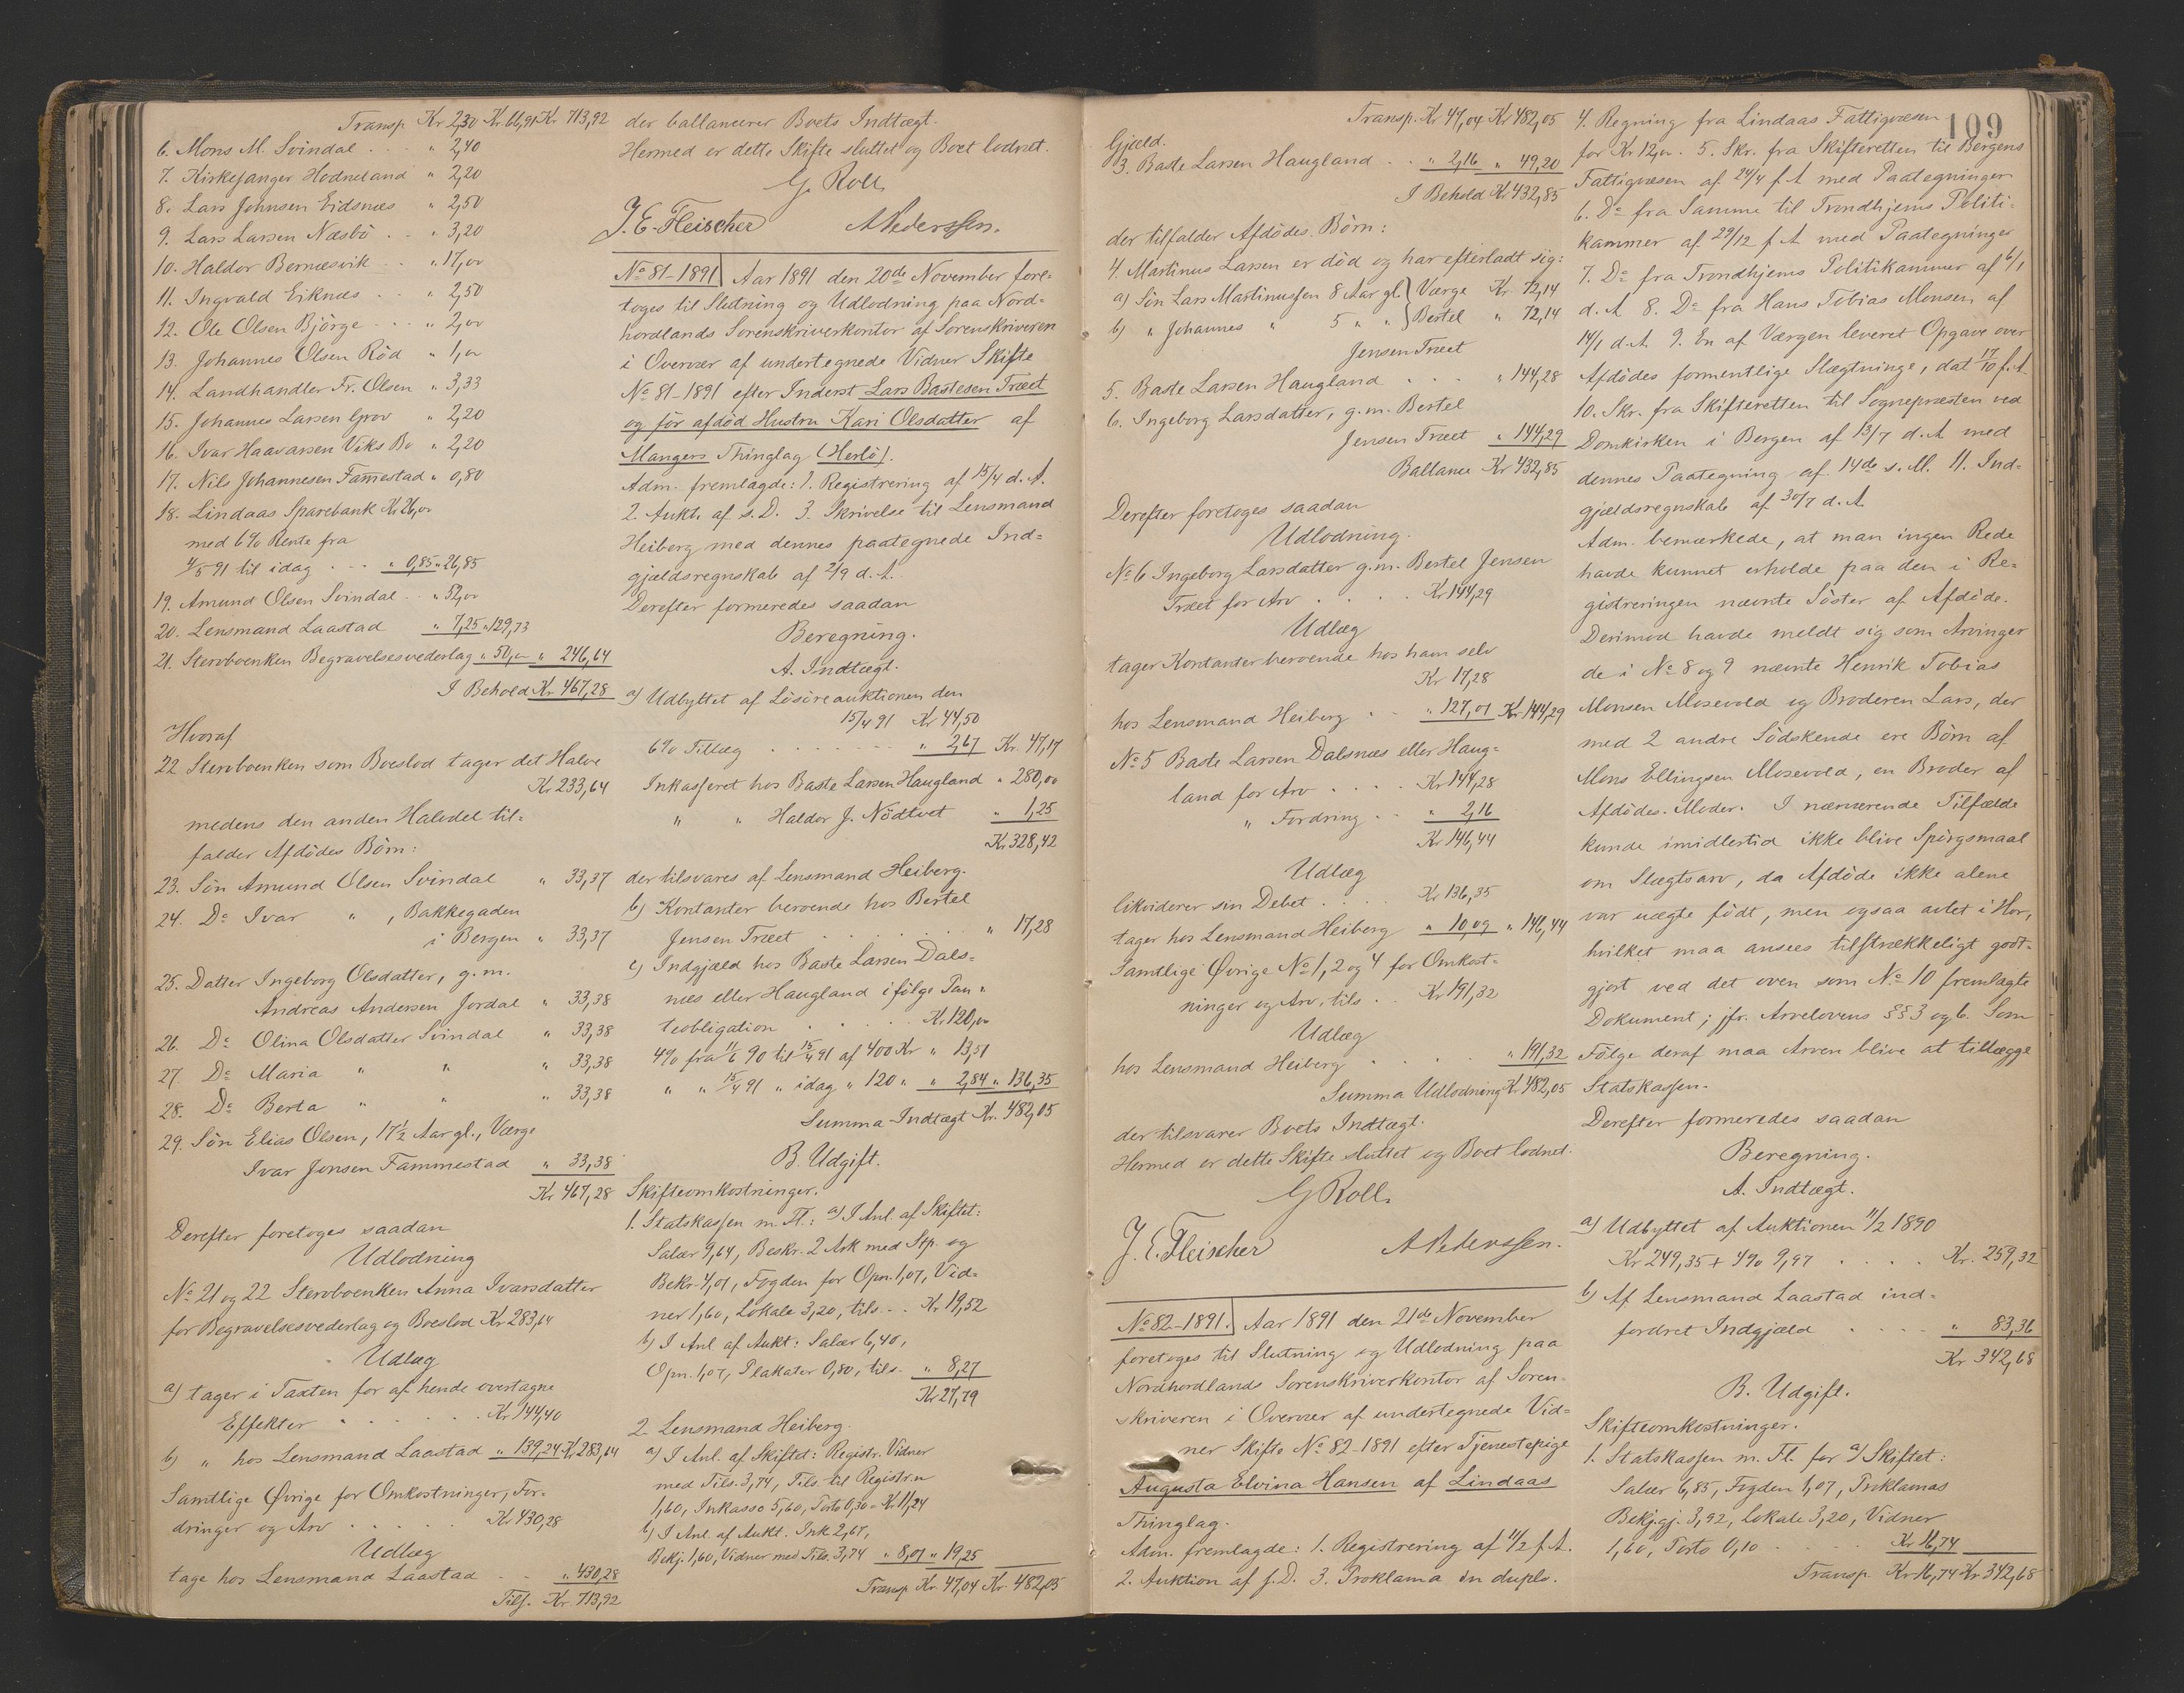 Transp. Kr 2,30 Kr. 66,91 Kr 713,92
6. Mons M. Svindal . . . " 2,40
7. Kirkesanger Hodneland " 2,20
8. Lars Johnsen Eidsnæs " 2,50
9. Lars Larsen Næsbö . . " 3,20
10. Haldor Bernæsvik . . " 17,00
11. Ingvald Eiknæs . . . " 2,50
12. Ole Olsen Björge . . . " 2,00
13. Johannes Olsen Röd " 1,00
14. Landhandler Fr. Olsen " 3,33
15. Johannes Larsen Grov " 2,20
16. Ivar Haavarsen Viks Bo " 2,20
17. Nils Johannesen Famestad " 0,80
18. Lindaas Sparebank Kr 26,00
med 6% Rente fra
4/5 91 til idag . . . " 0,85 " 26,85
19. Amund Olsen Svindal . . " 52,00
20. Lensmand Laastad " 7,25 " 129,73
21. Stervboenken Begravelsesvederlag " 50,00 " 246,64
I Behold Kr 467,28
Hvoraf
22 Stervboenken som Boeslod tager det Halve
Kr 233,64
medens den anden Halvdel til-
falder Afdödes Börn:
23. Sön Amund Olsen Svindal " 33,37
24. Do Ivar " , Bakkegaden
i Bergen " 33,37
25. Datter Ingeborg Olsdatter, g. m.
Andreas Andersen Jordal " 33,38
26. Do Olina Olsdatter Svindal " 33,38
27. Do Maria " " " 33,38
28. Do Berta " " " 33,38
29. Sön Elias Olsen, 17½ Aar gl., Værge
Ivar Jonsen Fammestad " 33,38
Kr 467,28
Derefter foretoges saadan
Udlodning
No 21 og 22 Stervboenken Anna Ivarsdatter
for Begravelsesvederlag og Boeslod Kr 283,64
Udlæg
a) tager i Taxten for af hende overtagne
Effekter . . . . . Kr 144,40
b) " hos Lensmand Laastad " 139,24 Kr 283,64
Samtlige Övrige for Omkostninger, For-
dringer og Arv . . . . Kr 430,28
Udlæg
tage hos Lensmand Laastad . . " 430,28
Tils. Kr. 713,92
der ballancerer Boets Indtægt.
Hermed er dette Skifte sluttet og Boet lodnet.
G. Roll
J. E. Fleischer APederssen.
No 81-1891 Aar 1891 den 20de November fore-
toges til Slutning og Udlodning paa Nord-
hordlands Sorenskriverkontor af Sorenskriveren
i Overvær af undertegnede Vidner Skifte
No 81-1891 efter Inderst Lars Bastesen Træet
og för afdöd Hustru Kari Olsdatter af
Mangers Thinglag (Herlö).
Adm. fremlagde: 1. Registrering af 15/4 d. A.
2. Aukt. af s. D. 3. Skrivelse til Lensmand
Heiberg med dennes paategnede Ind-
gjældsregnskab af 2/9 d. A.
Derefter formeredes saadan
Beregning.
A. Indtægt.
a) Udbyttet af Lösöreauktionen den
15/4 91 Kr 44,50
6% Tillæg . . . . . . " 2,67 Kr. 47,17
Inkasseret hos Baste Larsen Haugland " 280,00
" " Haldor J. Nödtvet " 1,25
Kr 328,42
der tilsvares af Lensmand Heiberg.
b) Kontanter beroende hos Bertel
Jensen Træet . . . . . . . " 17,28
c) Indgjæld hos Baste Larsen Dals-
næs eller Haugland ifölge Pan-
teobligation . . . . . Kr. 120,00
4% fra 11/6 90 til 15/4 91 af 400 Kr " 13,51
" " 15/4 91 " idag " 120 " " 2,84 " 136,35
Summa Indtægt Kr. 482,05
B. Udgift.
Skifteomkostninger.
1. Statskassen m. Fl.: a) I Anl. af Skiftet:
Salær 9,64, Beskr. 2 Ark med Stp. og
Bekr. 4,01, Fogden for Opn. 1,07, Vid-
ner 1,60, Lokale 3,20, tils. . . Kr. 19,52
b) I Anl. af Aukt: Salær 6,40,
Opn. 1,07, Plakater 0,80, tils. " 8,27
Kr 27,79
2. Lensmand Heiberg.
a) I Anl. af Skiftet: Registr. Vidner
med Tils. 3,74, Tils. til Registr.n
1,60, Inkasso 5,60, Porto 0,30 = Kr. 11,24
b) I Anl. af Aukt. Ink. 2,67,
Bekj. 1,60, Vidner med Tils. 3,74 " 8,01 " 19,25
Transp. Kr. 47,04 Kr. 482,05
Transp. Kr 47,04 Kr 482,05
Gjæld.
3. Baste Larsen Haugland . . " 2,16 " 49,20
I Behold Kr 432,85
der tilfalder Afdödes Börn:
4. Martinus Larsen er död og har efterladt sig:
a) Sön Lars Martinussen 8 Aar gl. } Værge Kr. 72,14
b) " Johannes " 5 " " } Bertel " 72,14
Jensen Træet
5. Baste Larsen Haugland . . . " 144,28
6. Ingeborg Larsdatter, g. m. Bertel
Jensen Træet " 144,29
Ballance Kr 432,85
Derefter foretoges saadan
Udlodning.
No 6 Ingeborg Larsdatter g. m. Bertel Jensen
Træet for Arv . . . . . Kr 144,29
Udlæg
tager Kontanter beroende hos ham selv
Kr 17,28
hos Lensmand Heiberg . . " 127,01 Kr 144,29
No 5 Baste Larsen Dalsnæs eller Haug-
land for Arv . . . . Kr 144,28
" Fordring . . " 2,16
Kr 146,44
Udlæg
likviderer sin Debet . . . . Kr 136,35
tager hos Lensmand Heiberg " 10,09 " 146,44
Samtlige Övrige No 1, 2 og 4 for Omkost-
ninger og Arv, tils . . Kr 191,32
Udlæg
hos Lensmand Heiberg . . . . " 191,32
Summa Udlodning Kr 482,05
der tilsvarer Boets Indtægt.
Hermed er dette Skifte sluttet og Boet lodnet.
G Roll.
J. E. Fleischer APederssen.
No 82-1891. Aar 1891 den 21de November
foretoges til Slutning og Udlodning paa
Nordhordlands Sorenskriverkontor af Soren-
skriveren i Overvær af undertegnede Vid-
ner Skifte No 82-1891 efter Tjenestepige
Augusta Elvina Hansen af Lindaas
Thinglag.
Adm. fremlagde: 1. Registrering af 11/2 f. A.
2. Auktion af s. D. 3. Proklama in duplo.
109
4. Regning fra Lindaas Fattigvæsen
for Kr 12,00. 5. Skr. fra Skifteretten til Bergens
Fattigvæsen af 24/4 f. A. med Paategninger
6. Do fra Samme til Trondhjems Politi-
kammer af 29/12 f. A. med Paategninger
7. Do fra Trondhjems Politikammer af 6/1
d. A. 8. Do fra Hans Tobias Monsen af
14/1 d. A. 9. En af Værgen leveret Opgave over
Afdödes formentlige Slægtninge, dat 17/10 f. A.
10. Skr. fra Skifteretten til Sognepræsten ved
Domkirken i Bergen af 13/7 d. A. med
dennes Paategning af 14de s. M. 11. Ind-
gjældsregnskab af 30/7 d. A.
Adm. bemærkede, at man ingen Rede
havde kunnet erholde paa den i Re-
gistreringen nævnte Söster af Afdöde.
Derimod havde meldt sig som Arvinger
de i No 8 og 9 nævnte Henrik Tobias
Monsen Mosevold og Broderen Lars, der
med 2 andre Södskende ere Börn af
Mons Ellingsen Mosevold, en Broder af
Afdödes Moder. I nærværende Tilfælde
kunde imidlertid ikke blive Spörgsmaal
om Slægtsarv, da Afdöde ikke alene
var uægte födt, men ogsaa avlet i Hor,
hvilket maa ansees tilstrækkeligt godt-
gjort ved det oven som No 10 fremlagte
Dokument; jfr. Arvelovens §§ 3 og 6. Som
Fölge deraf maa Arven blive at tillægge
Statskassen.
Derefter formeredes saadan
Beregning.
A. Indtægt.
a) Udbyttet af Auktionen 11/2 1890
Kr 249,35 + 4% 9,97 . . . . Kr. 259,32
b) Af Lensmand Laastad ind-
fordret Indgjæld . . . . " 83,36
Kr 342,68
B. Udgift.
Skifteomkostninger.
1. Statskassen m. Fl. for a) Skiftet:
Salær 6,85, Fogden 1,07, Proklamas
Bekj.gj. 3,92, Lokale 3,20, Vidner
1,60, Porto 0,10 . . . . Kr. 16,74
Transp. Kr 16,74 Kr 342,68